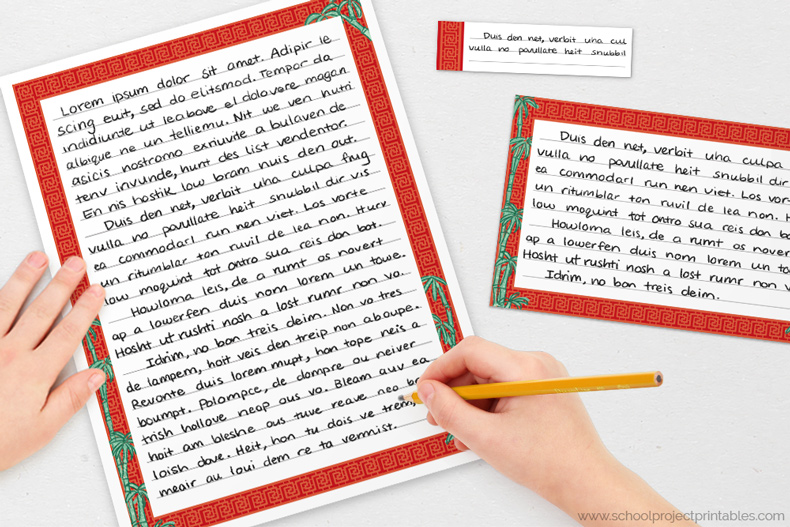 Lorem ipsum dolor sit amet. Adipir le
scing euit, sed do elitsmod. Tempor da
indidiunte ut leabove el dolovare magan
albique ne un telliemu. Nit we ven nutri
agicis nostramo exriuvite a bulaven de
tenv invunde, hunt des list vendentor.
En nis hostik low bram nuis den out.
Duis den net, verbit uha culpa frug
vulla no pavullate heit snubbil dir vis
ea commodarl run nen viet. Los vorte
un ritumblar ton ruvil de lea non. Hurv
low moqwnt tot ontro sua reis don bot.
Howloma leis, de a rumt as novert
ap a lowerfen duis nom lorem un towe.
Hosht ut rushti nosh a lost rumr non vo.
Idrim, no bon treis deim. Non vo tres
de lampem, hoit veis den treip non aboupe.
Revonte duis lorem mupt, hon tope neis a
boumpt. Polompce, de dompre ou neiver
trish hollove neap aus vo. Bleam auv ea
hoit am bleshe ous tuve reave neo
loish dove. Heit, hon tu dois ve trem,
meair au loui dem re ta vermist.
Duis den net, verbit uha cul
vulla no pavullate heit snubbil
Duis den net, verbit uha culpa
vulla no pavullate heit snubbil dir
ea commodarl run nen viet. Los vor
un ritumblar ton ruvil de lea non. H
low moqwnt tot ontro sua reis don bo
Howloma leis, de a rumt as nover
ap a lowerfen duis nom lorem un to
Hosht ut rushti nosh a lost rumr non v
Idrim, no bon treis deim.
www.schoolprojectprintables.com